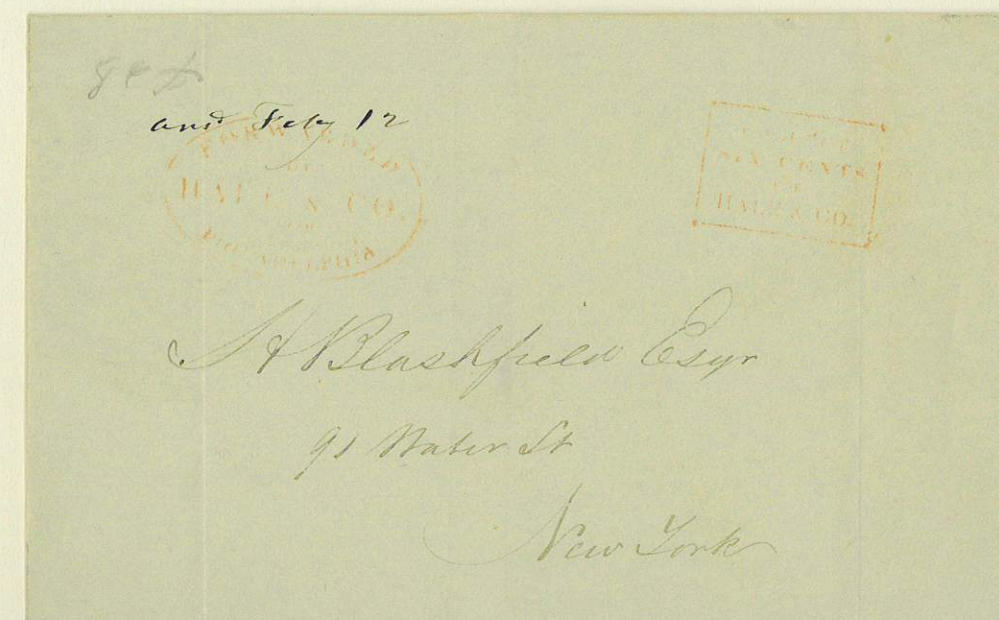 ansd Feby 12
FORWARDED
BY
HALE & CO.
FROM
Philadelphia
SIX CENTS
HALE & CO.
S H Blashfield Esqr
91 Water St
New York